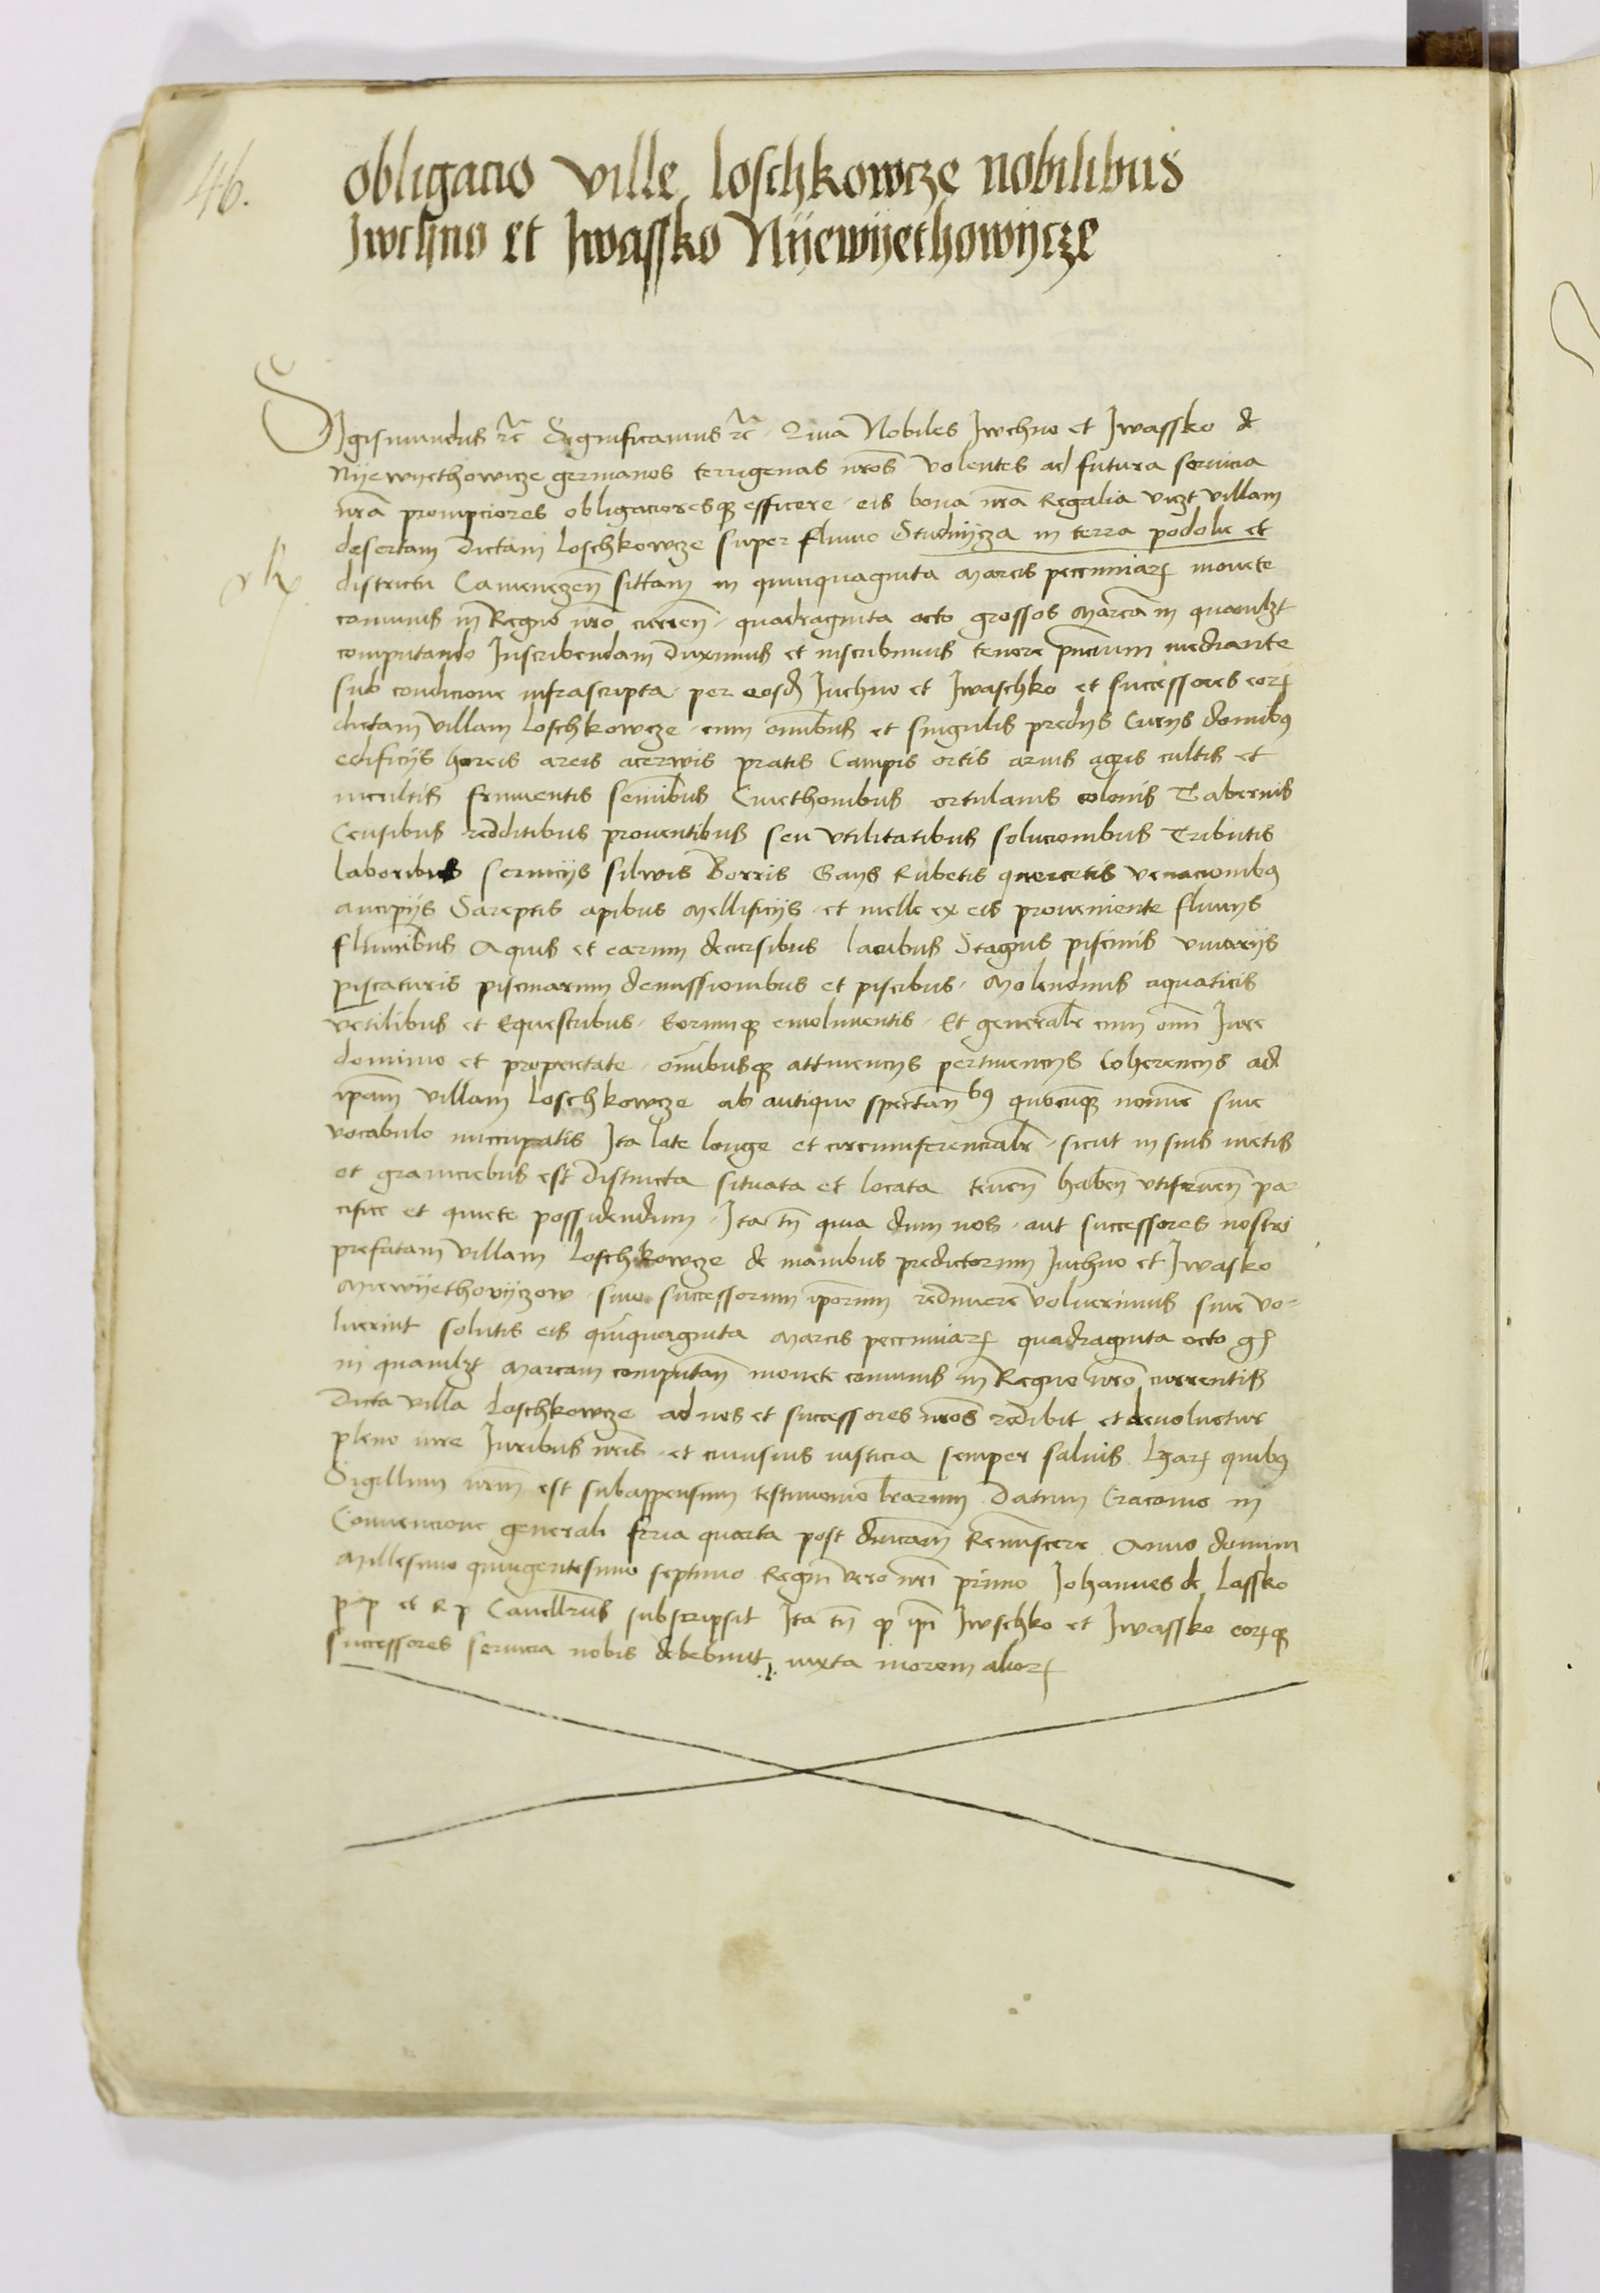 46.
obligacio ville loschkowcze nobilibus
Jwchno et Jwassko Nyewyethowycze
Sigismundus rc Significamus rc. Quia Nobiles Jwchno et Jwassko de
Nyewyethowicze germanos terrigenas nros volentes ad futura servicia
nra prompciores obligacioresq efficere. eis bona nra Regalia viczt villam
desertam dictam loschkowcze super fluvio Studnycza in terra podolie et
districtu Camenezen sittam in quinquaginta marcis pecuniar monete
comunis in Regno nro curren. quadraginta octo grossos marcam in quamlzt
computando Inscribendam duximus et inscribimus tenore pncium mediante
sub condicione infrascripta. per eosd Juchno et Jwaschko et successores eor
dictam villam loschkowcze. cum omibus et singulis predys Curys domibus
edificys horeis areis acerwis pratis Campis ortis arvis agris cultis et
incultis frumentis semibus Cmethonibus ortulanis colonis Tabernis
Censibus redditibus proventibus seu vtilitatibus solucionibus Tributis
laboribus servicys silwis Borris Gays Rubetis quercetis venacionibus
aucipys Sareptis apibus mellificys et melle ex eis proveniente fluvys
flumibus Aquis et earum decursibus lacubus Stagnis piscinis vivarys
piscaturis piscinarum demissionibus et piscibus. Molendinis aquaticis
vetilibus et Equestribus. Eorumq emolumentis. Et generalr cum omi Jure
dominio et proprietate. omibusq attinencys pertinencys Coherencys ad
ipam villam loschkowcze ab antiquo spectan bus quocumq nomine sive
vocabulo nuccupatis Ita late longe et circumferencialr. sicut in suis metis
et graniciebus est distincta situata et locata tenen haben vtifruen pa
cifice et quiete possidendum. Ita tn quia dum nos. aut successores nostri
prefatam villam loschkowcze de manibus predictorum Juchno et Jwasko
Miewyethovyczow. sive successorum iporum redimere voluerimus sive vo-
luerint solutis eis quinquaginta marcis pecuniar quadraginta octo gr
in quamlzt marcam computan monete comunis in Regno nro currentis
Dicta villa loschkowcze ad nos et successores nros redibit et devoluetur
pleno iure Juribus nris. et cuiusvis iusticia semper salvis. Lrar quibus
Sigillum nrm est subappensum testimonio lrarum. Datum Cracovie in
Convencione generali feria quarta post dnicam Reminiscere Anno domini
Millesimo quingentesimo septimo Regni vero nri primo Johannes de lassko
p p et R p Cancellrus subscripsit Ita tn q ipi Jwschko et Jwassko eorq
successores servicia nobis debebunt iuxta morem alior